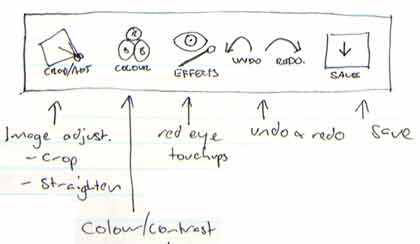 B
B B
CROP/ROT COLOUR EFFECTS UNDO REDO. SAVE
Image adjust.
- Crop
- Straighten
red eye
touchups
undo & redo
Save
Colour/contrast